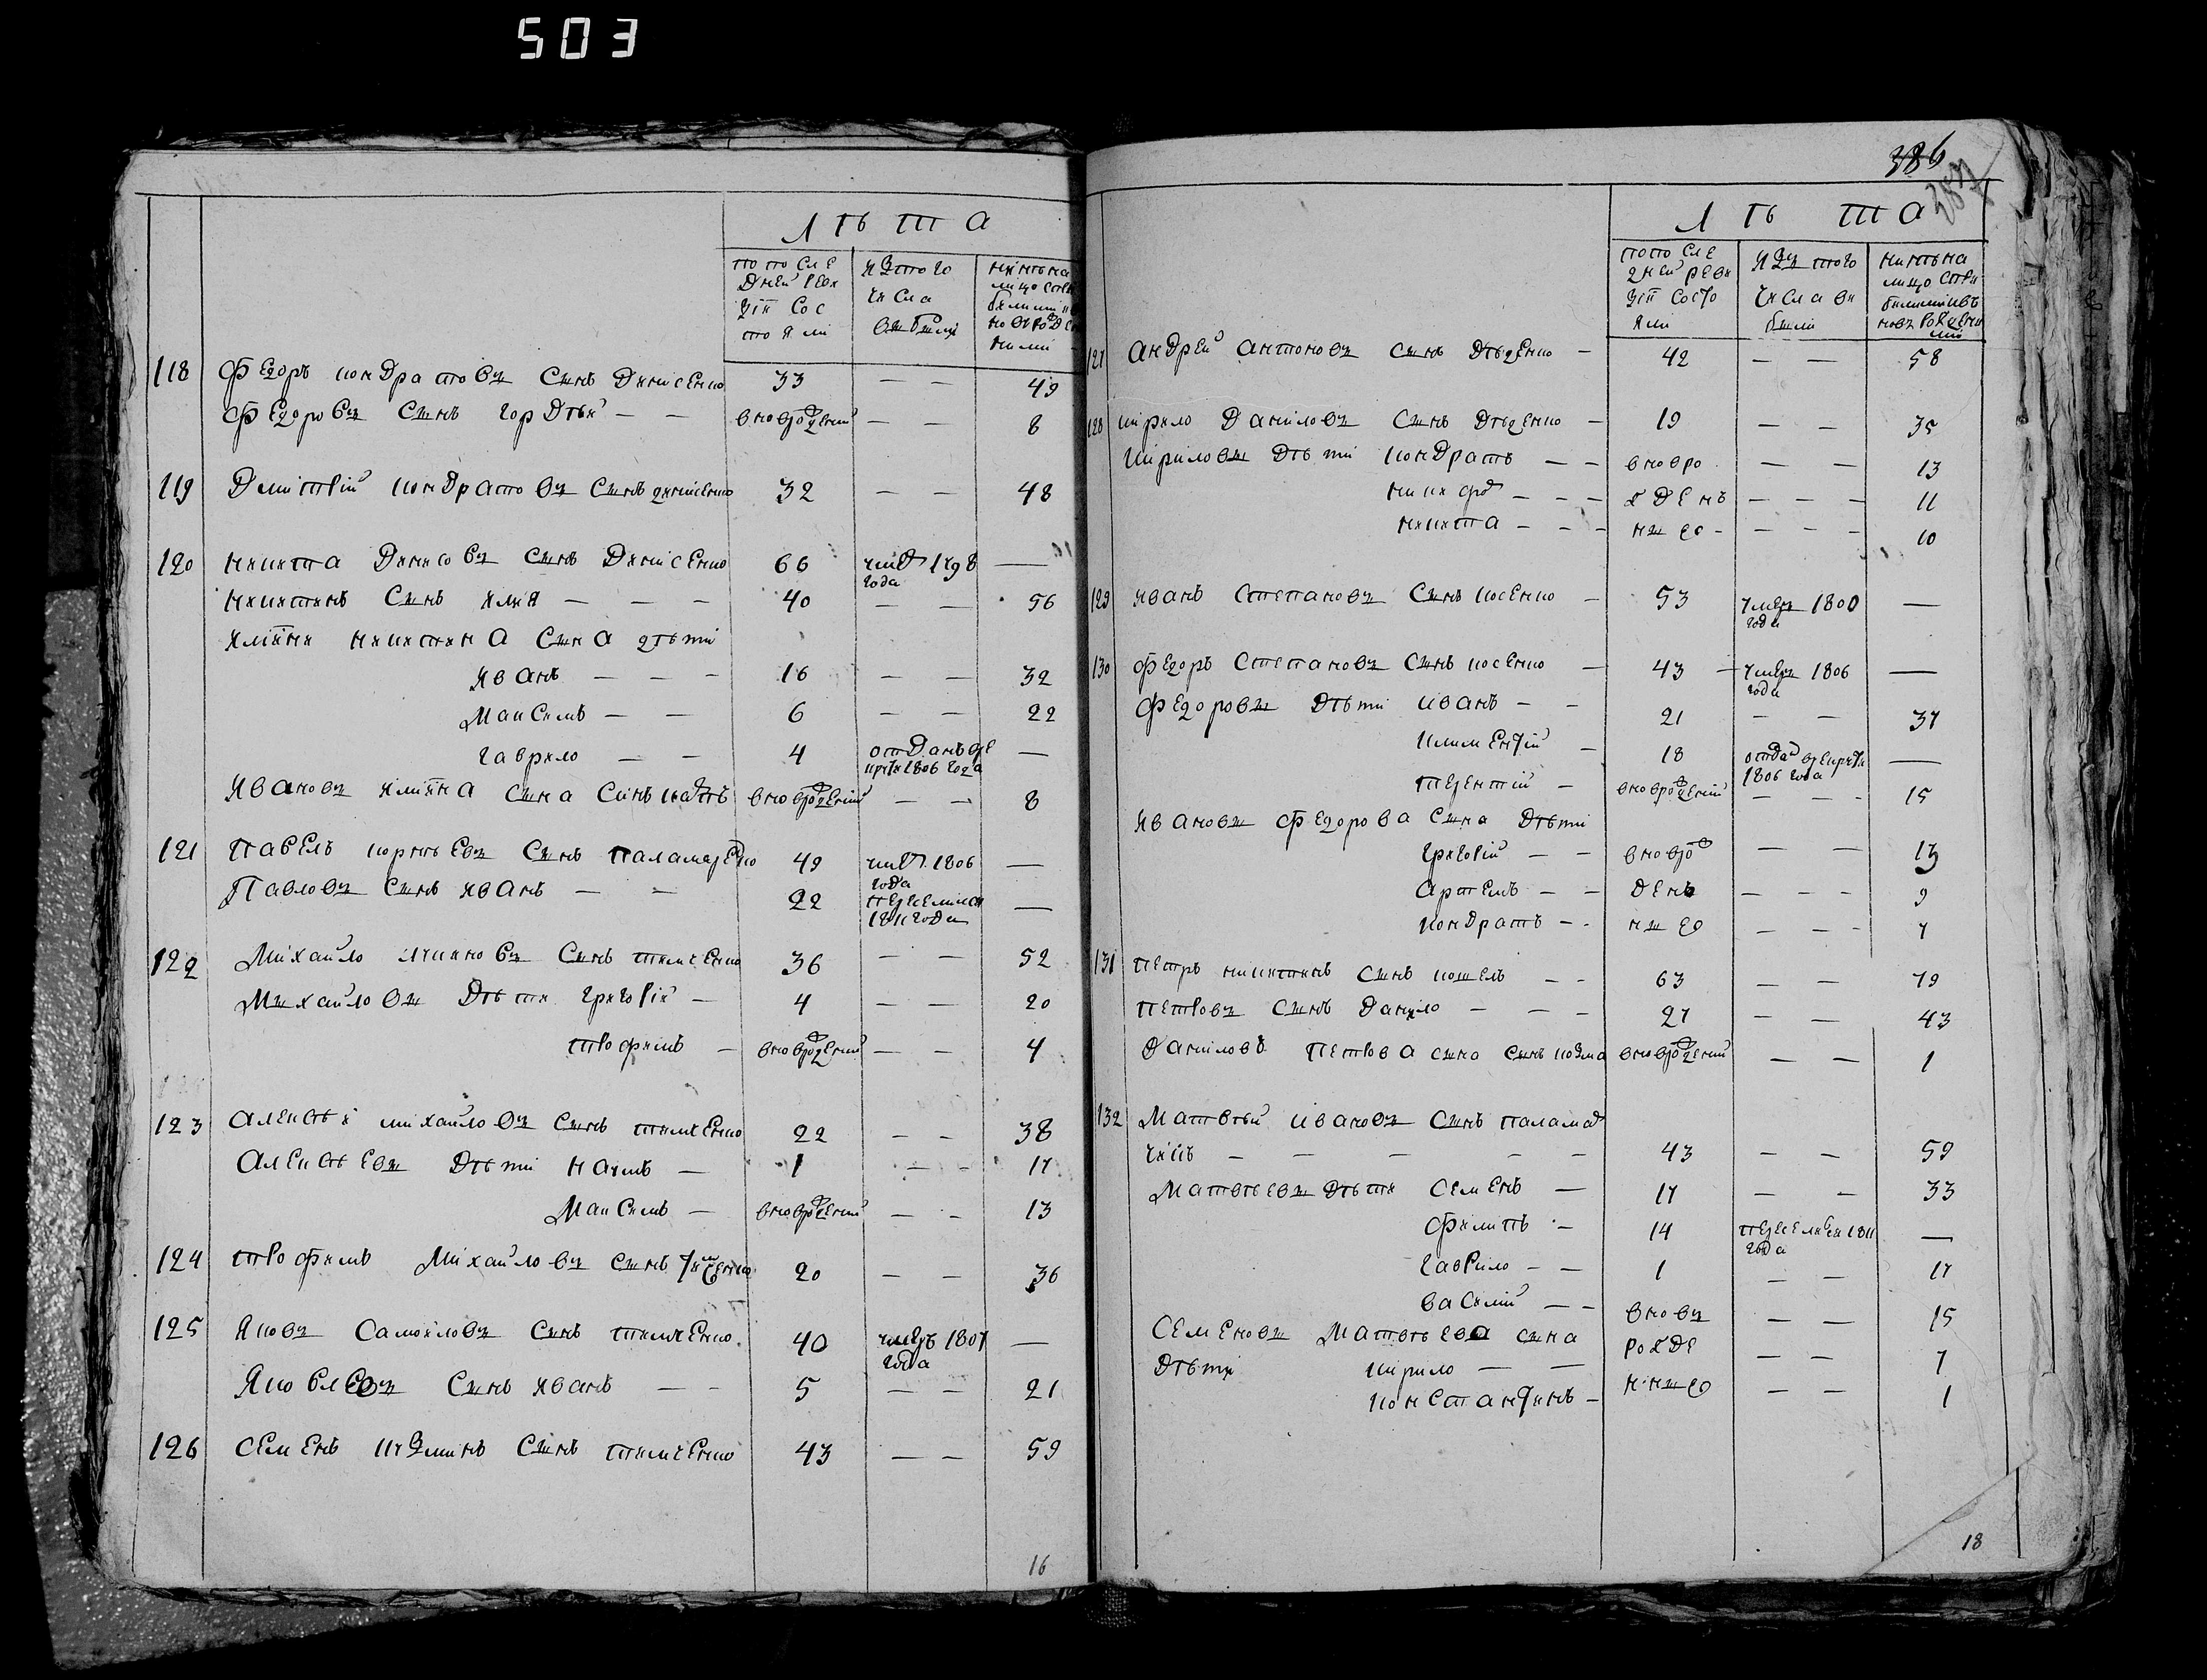 503
ЛѢТА
по после
дней реви
зіи сос
тояли
изъ того
числа
выбыли
нынѣ на
лицо
118 Федоръ кондратовъ сынъ Дынисенко 33 — — 49
Федоровъ сынъ гордѣй — — вноврожденій — — 8
119 Дмитрій кондратовъ сынъ дынисенко 32 — — 48
120 никита Динисовъ сынъ Динисенко 66 умер 1798 года —
никитинъ сынъ илия — — — 40 — — 56
илиіни никитина сына дѣти
иванъ — — — 16 — — 32
Максимъ — — 6 — — 22
гаврило — — 4 отданъ вре круты 1806 года —
ивановъ илиина сына синъ вноврожденій — — 8
121 Павелъ корнѣевъ сынъ паламаренко 49 умер. 1806 года —
Павловъ сынъ иванъ — — 22 переселился 1811 года —
122 Михайло сынъ тимченко 36 — — 52
Мыхайловы дѣти григорій — 4 — — 20
трофимъ — вноврожденій — — 4
123 алексѣй михайловъ сынъ тимченко 22 — — 38
Алексѣевы дѣти наумъ — 1 — — 17
Максимъ — вноврожденій — — 13
124 трофимъ Михайловъ сынъ тимченко 20 — — 36
125 яковъ самойловъ сынъ тимченко 40 умеръ 1807 года —
яковлевъ сынъ иванъ — — 5 — — 21
126 семенъ кузминъ сынъ тимченко 43 — — 59
16
386
ЛѢТА
по после
дней реви
зіи состо
яли
изъ того
числа вы
были
нынѣ на
лицо
127 андрей антоновъ сынъ Дѣденко — 42 — — 58
128 кирило данѝловъ сынъ дѣденко — 19 — — 35
кириловы дѣти кондратъ — — вновро — — 13
никифор — — — жденъ — — — 11
никита — — — ныхъ — — — — 10
129 иванъ степановъ сынъ косенко — 53 умеръ 1800 года —
130 федоръ степановъ сынъ косенко — 43 умеръ 1806 года —
федоровы дѣти иванъ — — 21 — — 37
климентій — 18 отдан врекруты 1806 года —
терентій — вноврожденій — — — 15
ивановы федорова сына дѣти
григорій — — вноврож — — 13
артемъ — — денъ — — — 9
кондратъ — — ныхъ — — — 7
131 петръ никитинъ сынъ кошель — — 63 — — 79
петровъ сынъ данило — — — 27 — — 43
даниловъ петрова сына сынъ козма вноврожденій — — 1
132 Матвѣй ивановъ сынъ паламар
чукъ — — — — — 43 — — 59
Матвѣевы дѣти семенъ — 17 — — 33
филипъ — 14 переселился 1811 года —
гаврило — — 1 — — 17
василій — — вновъ — — 15
семеновы матвѣева сына рожде
дѣти кирило — — — — 7
константинъ — нныхъ — — 1
18